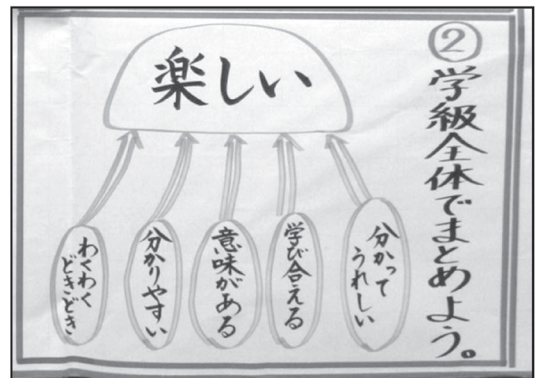 ②学級全体でまとめよう。
楽しい
分かって
うれしい
学び合える
意味がある
分かりやすい
わくわく
どきどき